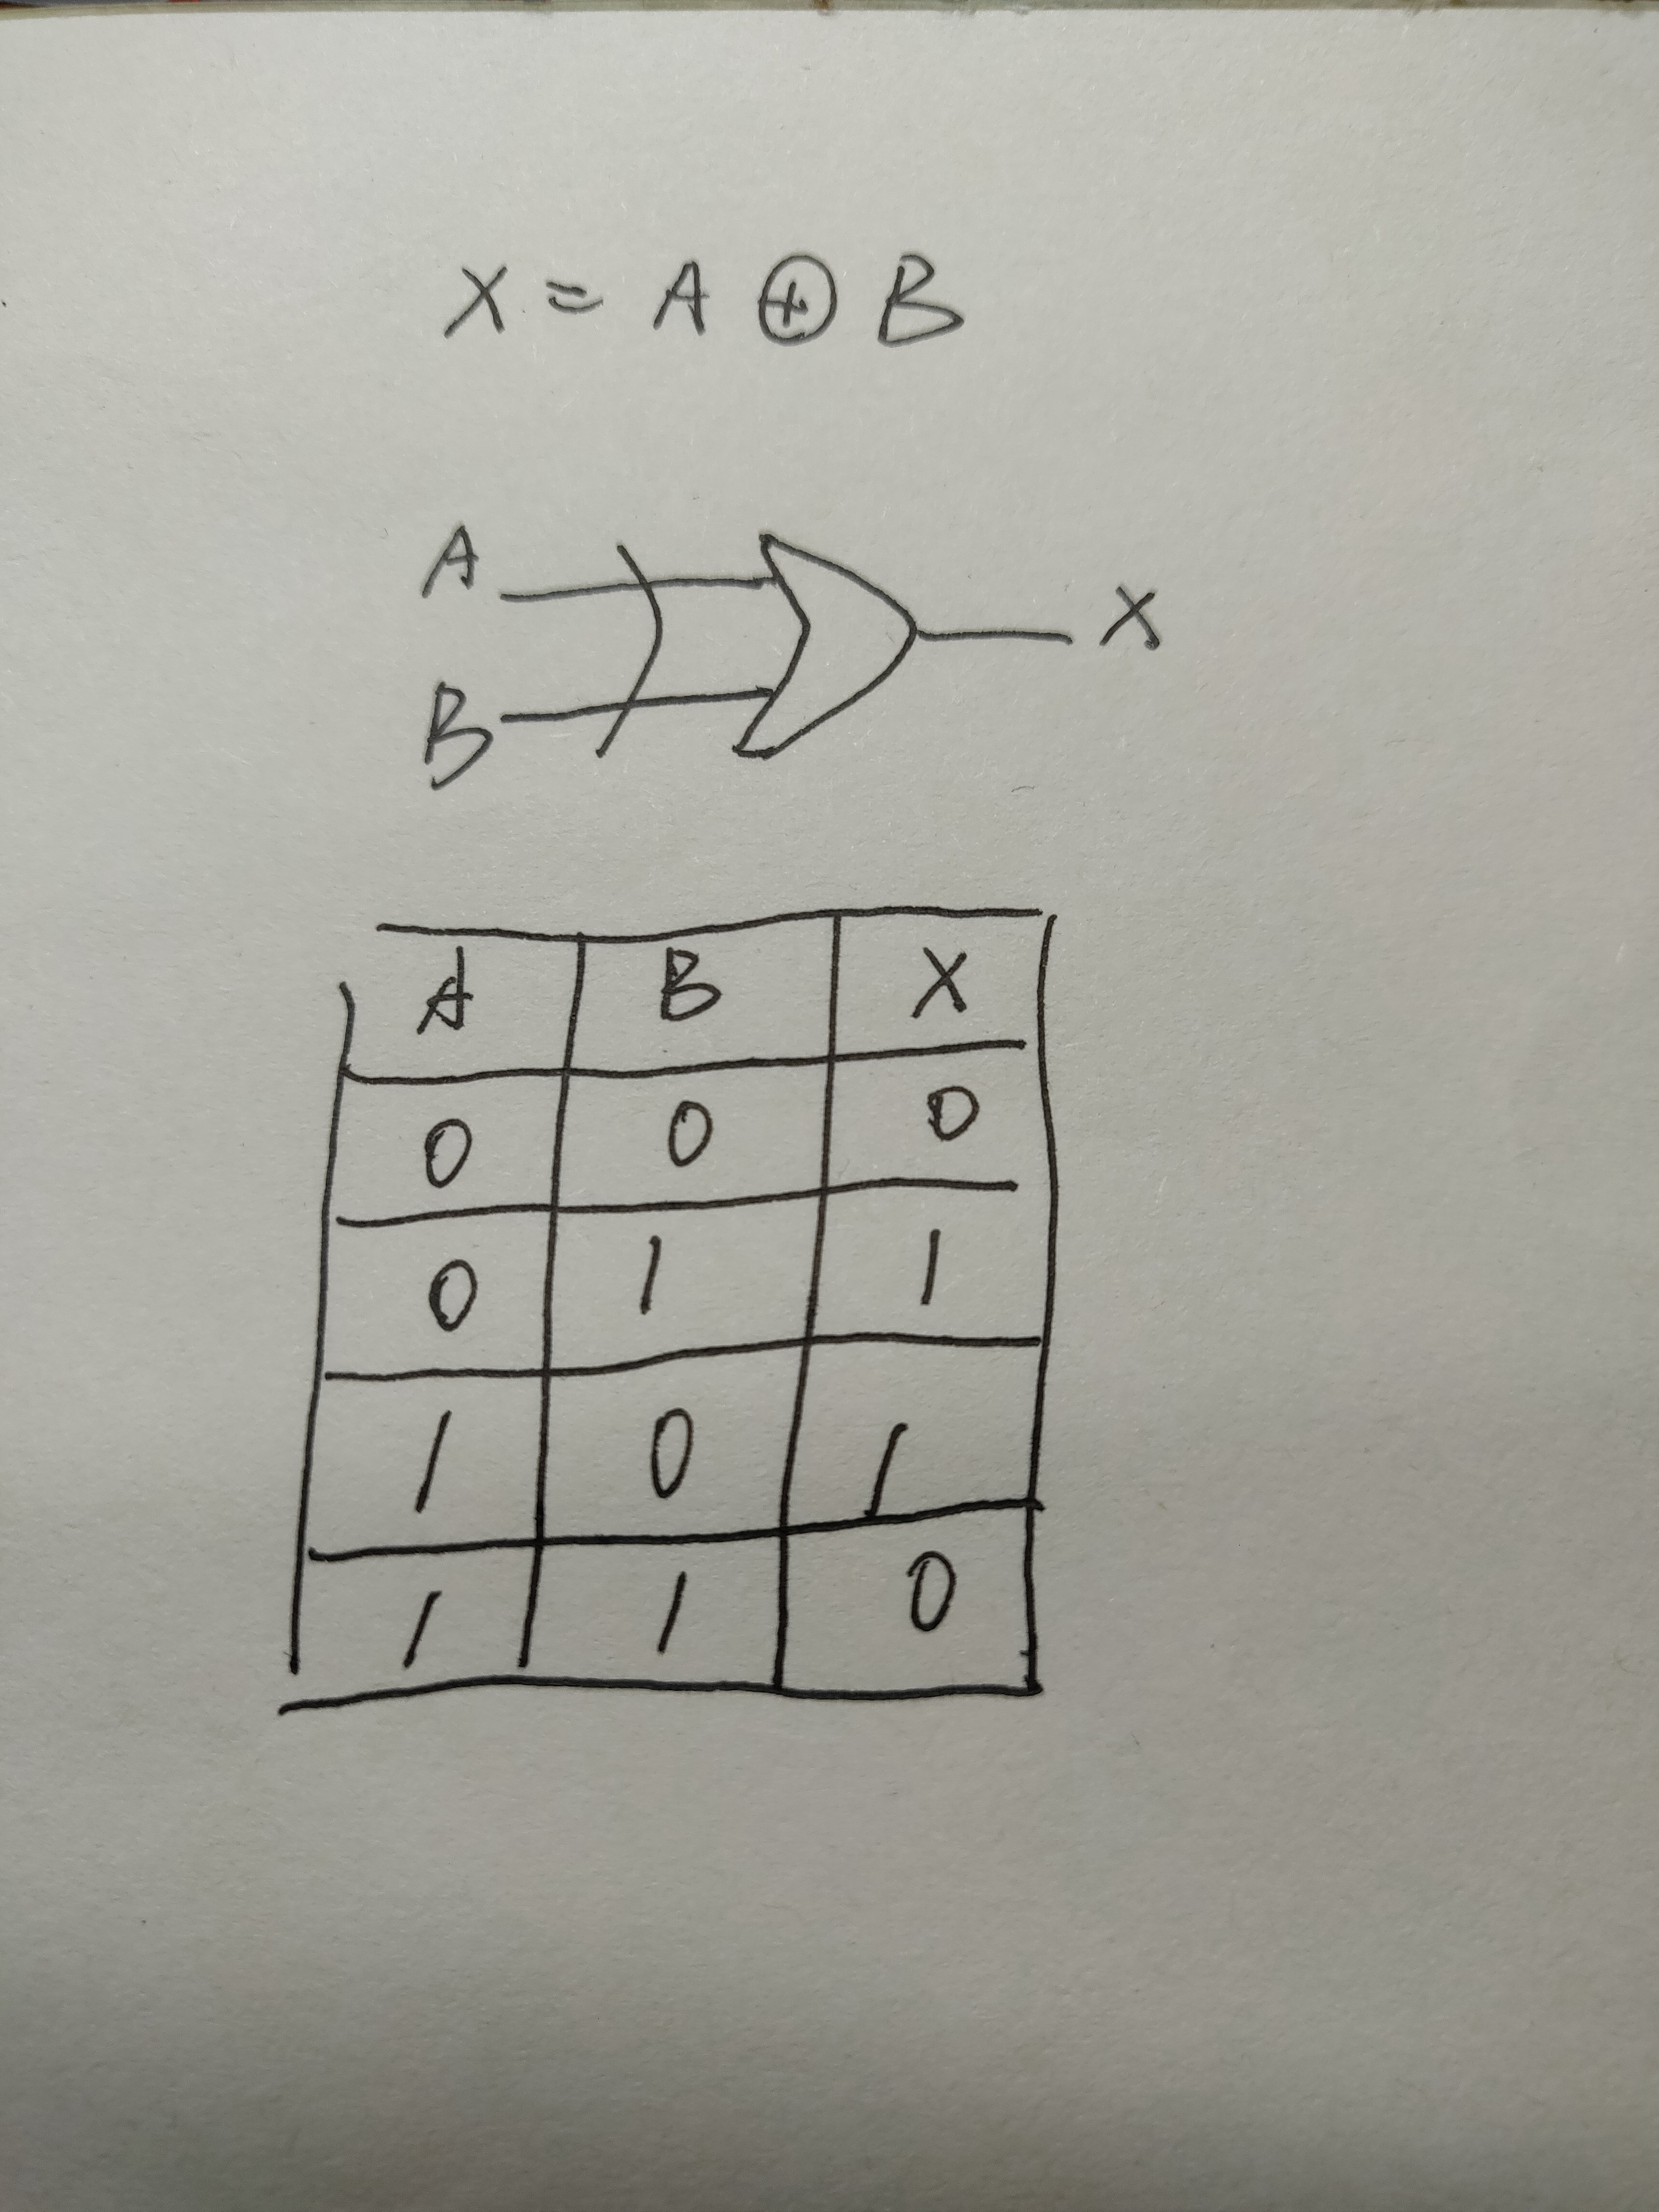 X = A ⊕ B
A
X
B
A B X
0 0 0
0 1 1
1 0 1
1 1 0